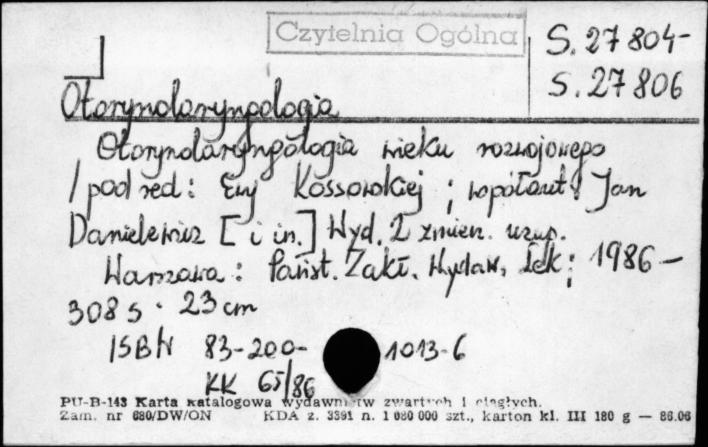 Czytelnia Ogólna
S. 27 804-
S. 27 806
Otorynolaryngologia
Otorynolaryngologia wieku rozwojowego
/ pod red: Ewy Kossowskiej ; współaut: Jan
Danielewicz [i in.] Wyd. 2 zmien. uzup.
Warszawa : Państ. Zakł. Wydaw. Lek; 1986 -
308 s. 23 cm
ISBN 83-200-1013-6
KK 65/86
PU-B-143 Karta katalogowa wydawnictw zwartych i ciągłych.
Zam. nr 680/DW/ON KDA z. 3391 n. 1 080 000 szt., karton kl. III 180 g — 86.06